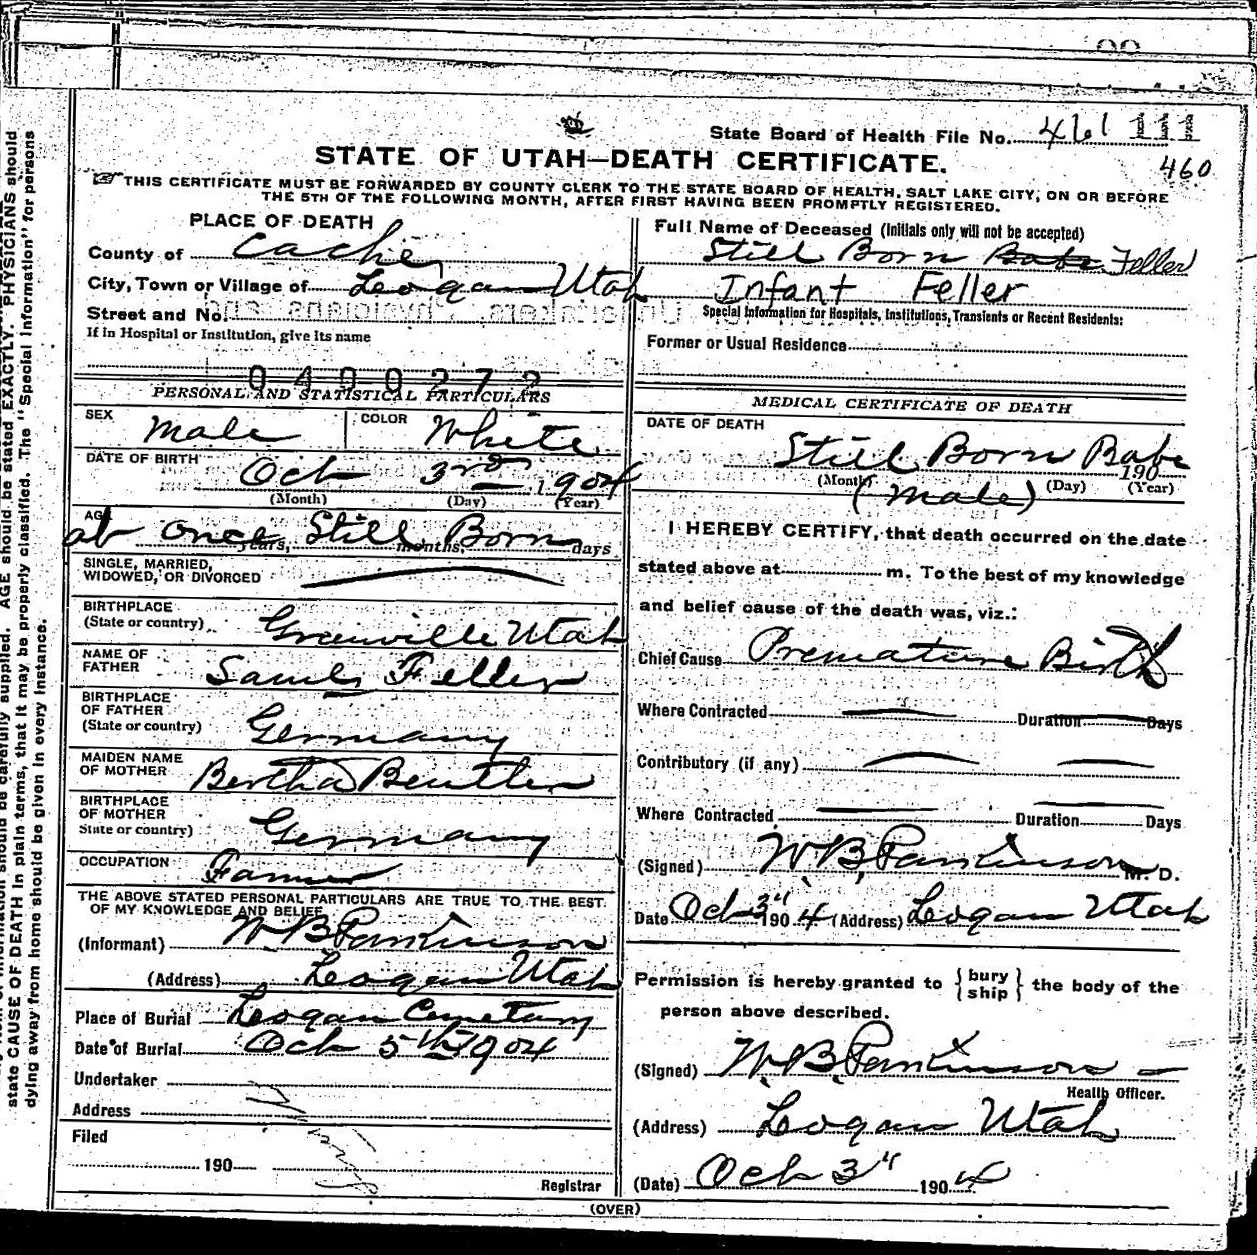 State Board of Health File No. 461 111
460
STATE OF UTAH—DEATH CERTIFICATE.
THIS CERTIFICATE MUST BE FORWARDED BY COUNTY CLERK TO THE STATE BOARD OF HEALTH, SALT LAKE CITY, ON OR BEFORE
THE 5TH OF THE FOLLOWING MONTH, AFTER FIRST HAVING BEEN PROMPTLY REGISTERED.
PLACE OF DEATH
County of Cache
City, Town or Village of Logan Utah
Street and No.
If in Hospital or Institution, give its name
0400272
PERSONAL AND STATISTICAL PARTICULARS
SEX Male COLOR White
DATE OF BIRTH Oct 3rd 1904
(Month) (Day) (Year)
AGE at once Still Born
years, months, days
SINGLE, MARRIED,
WIDOWED, OR DIVORCED
BIRTHPLACE
(State or country) Greenville Utah
NAME OF
FATHER Saml Feller
BIRTHPLACE
OF FATHER
(State or country) Germany
MAIDEN NAME
OF MOTHER Bertha Beutler
BIRTHPLACE
OF MOTHER
State or country) Germany
OCCUPATION Farmer
THE ABOVE STATED PERSONAL PARTICULARS ARE TRUE TO THE BEST
OF MY KNOWLEDGE AND BELIEF
(Informant) W. B. Parkinson
(Address) Logan Utah
Place of Burial Logan Cemetary
Date of Burial Oct 5th 1904
Undertaker
Address
Filed
190
Registrar
Full Name of Deceased (Initials only will not be accepted)
Still Born Babe Feller
Infant Feller
Special Information for Hospitals, Institutions, Transients or Recent Residents:
Former or Usual Residence
MEDICAL CERTIFICATE OF DEATH
DATE OF DEATH
Still Born Babe
190
(Month) (Day) (Year)
(Male)
I HEREBY CERTIFY, that death occurred on the date
stated above at m. To the best of my knowledge
and belief cause of the death was, viz.:
Chief Cause Premature Birth
Where Contracted Duration Days
Contributory (if any)
Where Contracted Duration Days
(Signed) W. B. Parkinson M. D.
Date Oct 3" 1904 (Address) Logan Utah
Permission is hereby granted to { bury ship } the body of the
person above described.
(Signed) W. B. Parkinson
Health Officer.
(Address) Logan Utah
(Date) Oct 3" 1904
(OVER)
AGE should be stated EXACTLY. PHYSICIANS should
state CAUSE OF DEATH in plain terms, that it may be properly classified. The "Special Information" for persons
dying away from home should be given in every instance.